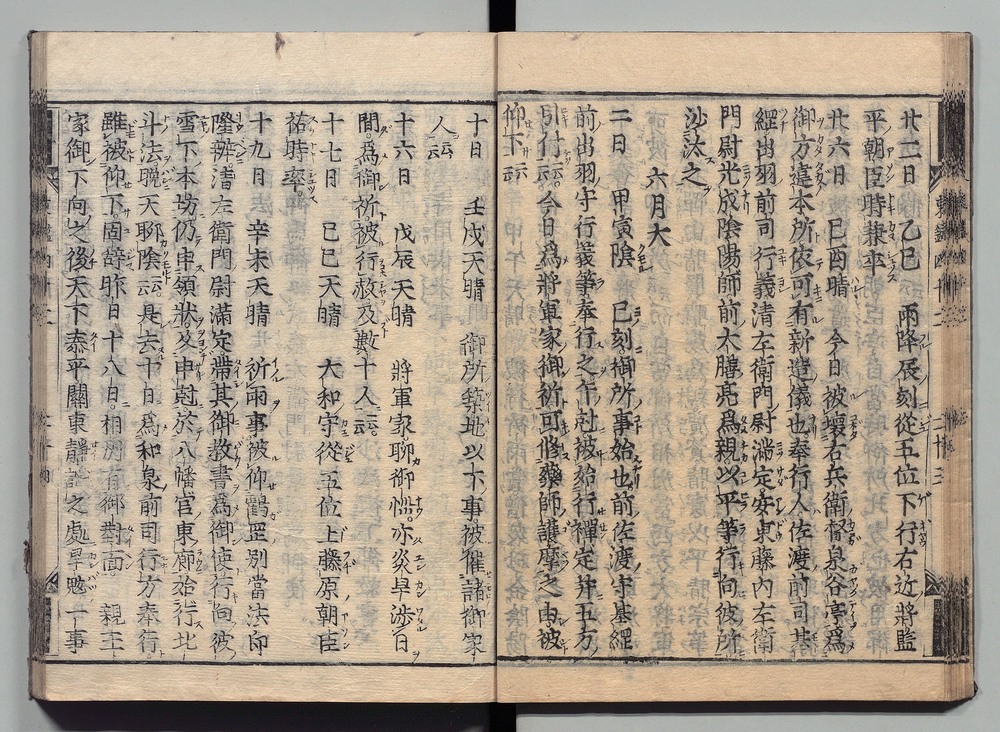 廿二日 乙巳 雨降辰刻從五位下行右近將監
平朝臣時兼卒
廿六日 己酉晴 今日被壞右兵衛督泉谷亭爲
御方違本所依可有新造儀也奉行人佐渡前司基
經出羽前司行義清左衛門尉滿定安東藤内左衛
門尉光成陰陽師前大膳亮爲親以平等行向彼所
沙汰之
六月大
二日 甲寅陰 巳刻御所事始也前佐渡守基經
前出羽守行義等奉行之午尅被始行禪定并五方
引付云云今日爲將軍家御祈可修藥師護摩之由被
仰下云云
十日 壬戌天晴 御所築地以下事被催諸御家
人云云
十六日 戊辰天晴 將軍家聊御惱亦炎旱渉日
間爲御祈被行赦及數十人云云
十七日 己巳天晴 大和守從五位上藤原朝臣
祐時卒
十九日 辛未天晴 祈雨事被仰鶴罡別當法印
隆辨清左衛門尉滿定帶其御教書爲御使行向彼
雪下本坊仍申領狀及申尅於八幡宮東廊始行北
斗法晩天聊陰云云是去十日爲和泉前司行方奉行
雖被仰下固辞昨日十八日相州有御對面 親王
家御下向之後天下泰平關東靜謐之處旱魃一事